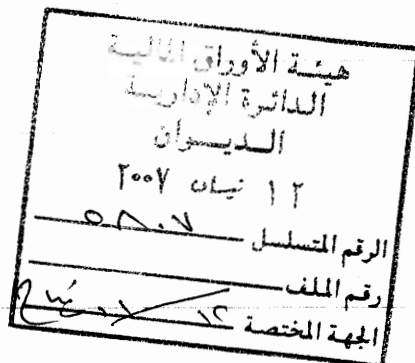 هيئة الأوراق المالية
الدائرة الإدارية
الديوان
١٢ نيسان ٢٠٠٧
الرقم المتسلسل ٥٨٠٧
رقم الملف
الجهة المختصة